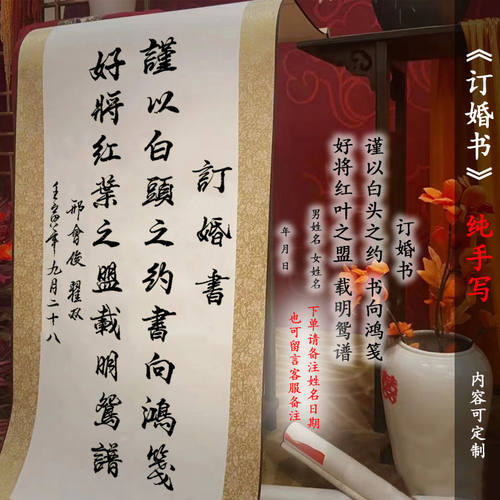 訂婚書
謹以白頭之约書向鴻笺
好將红葉之盟載明鴛譜
邢會俊 翟双
年九月二十八
《订婚书》
纯手写
内容可定制
订婚书
谨以白头之约 书向鸿笺
好将红叶之盟 载明鸳谱
男姓名 女姓名
年 月 日
下单请备注姓名日期
也可留言客服备注